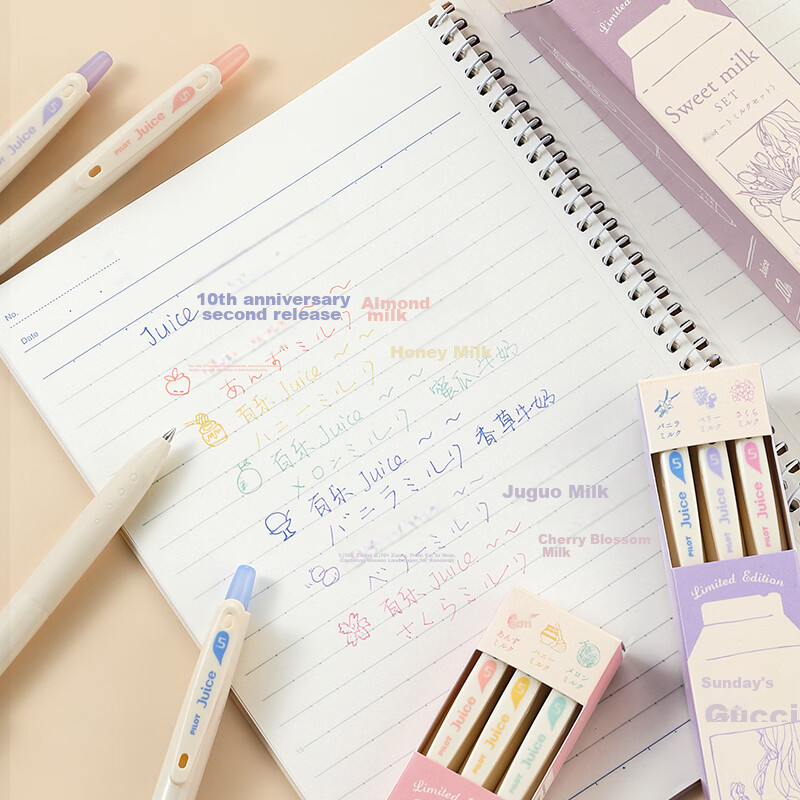 Limited
Sweet milk
SET
PILOT Juice 5
PILOT Juice 5
No.
Date
Juice
10th anniversary
second release
Almond
milk
あんずミルク
Honey Milk
百乐 Juice ~ ~
ハニーミルク
百乐 Juice ~ ~ 蜜瓜牛奶
メロンミルク
百乐 Juice ~ ~ 香草牛奶
バニラミルク
Juguo Milk
ベリーミルク
Cherry Blossom
Milk
百乐 Juice ~ ~
さくらミルク
Juice
バニラ
ミルク
ベリー
ミルク
さくら
ミルク
5 Juice PILOT
5 Juice PILOT
5 Juice PILOT
Limited Edition
Sunday's
Gucci
あんず
ミルク
ハニー
ミルク
メロン
ミルク
PILOT Juice 5
PILOT Juice 5
PILOT Juice 5
Limited Edition
PILOT Juice 5